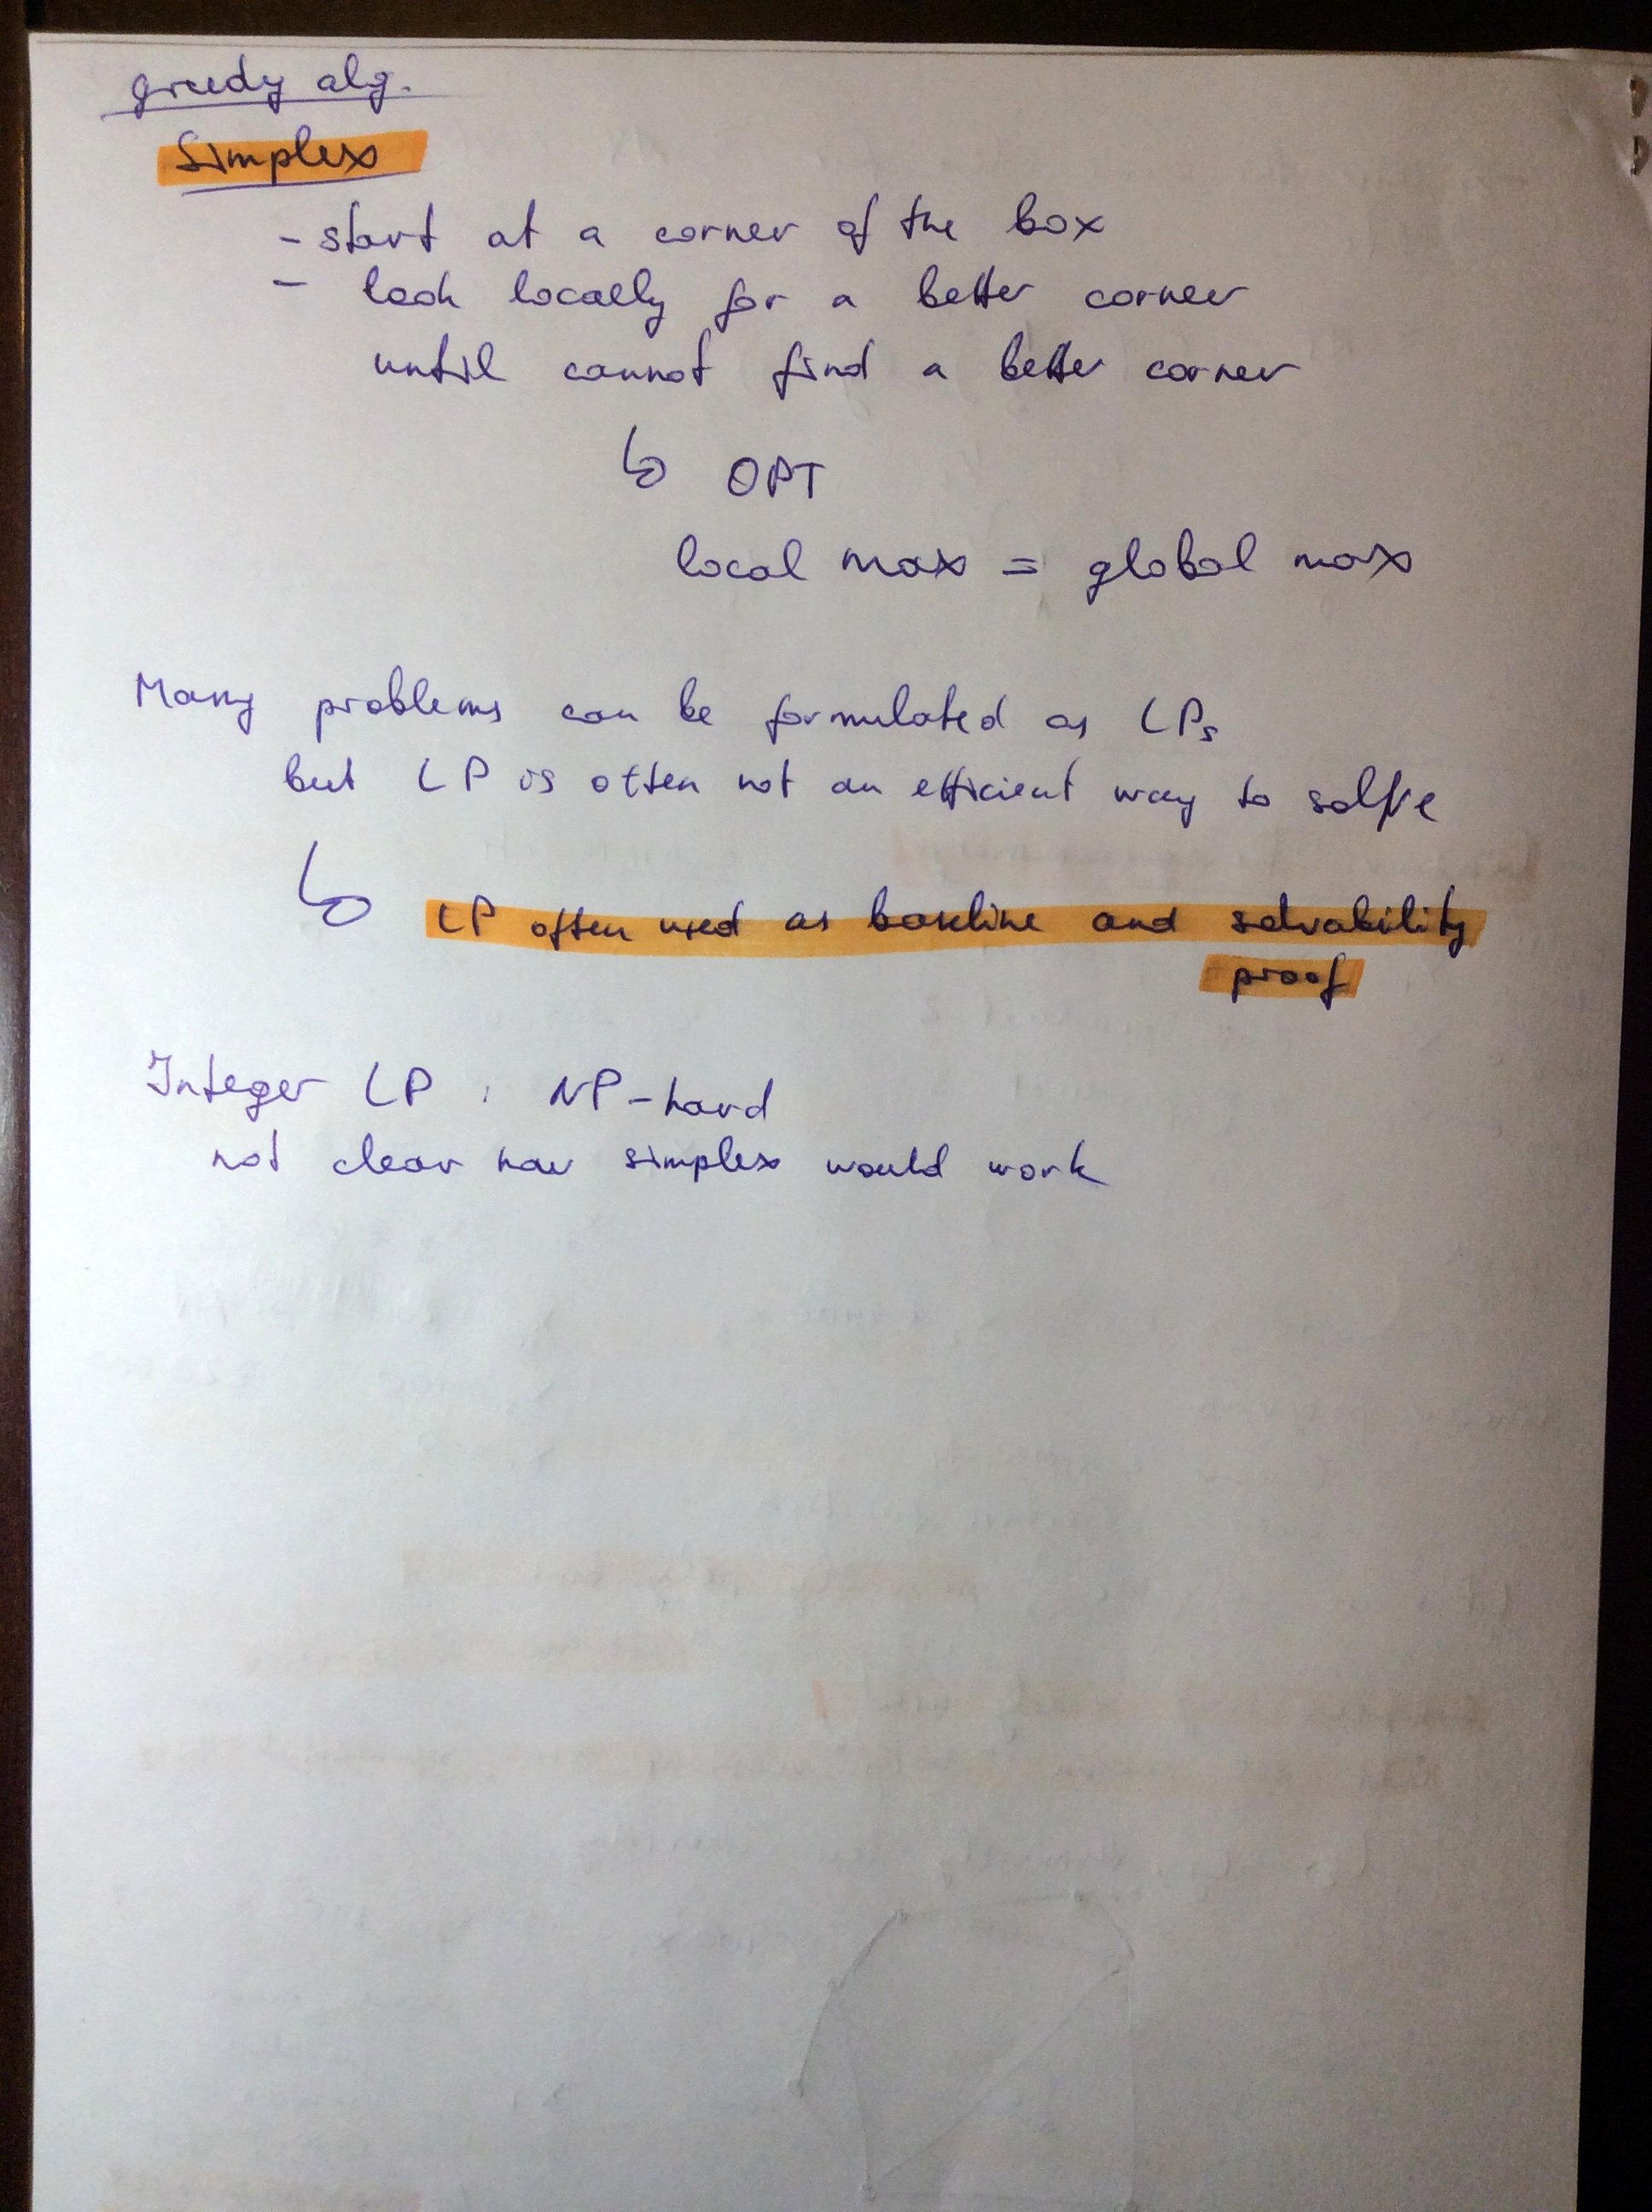 greedy alg.
Simplex
- start at a corner of the box
- look locally for a better corner
until cannot find a better corner
↳ OPT
local max = global max
Many problems can be formulated as LPs
but LP is often not an efficient way to solve
↳ LP often used as baseline and solvability
proof
Integer LP : NP-hard
not clear how simplex would work